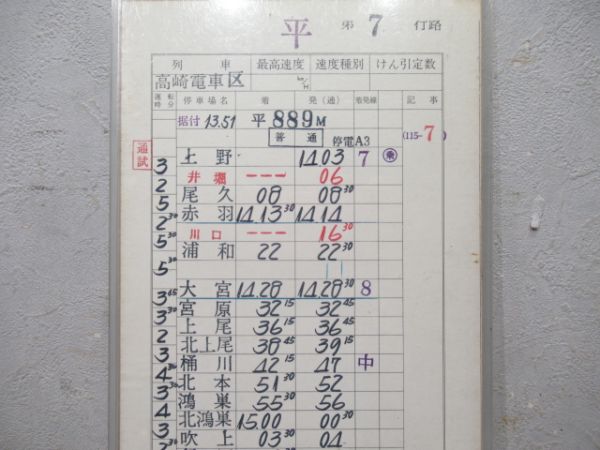 平 第 7 行路
列車 最高速度 速度種別 けん引定数
高崎電車区 km/H
運転時分 停車場名 着 発(通) 着発線 記事
据付 13.51 平 889M
普通 停電A3 (115-7)
通試
3 上野 14 03 7 乗
2 井堀 --- 06
5 尾久 08 08 30
2 30 赤羽 14 13 30 14 14
5 30 川口 --- 16 30
浦和 22 22 30
5 30 11
大宮 14.28 14.28 30 8
3 45 宮原 32 15 32 45
3 30 上尾 36 15 36 45
2 北上尾 38 45 39 15
3 桶川 42 15 47 中
4 30 北本 51 30 52
3 30 鴻巣 55 30 56
4 北鴻巣 15.00 00 30
3 吹上 03 30 04